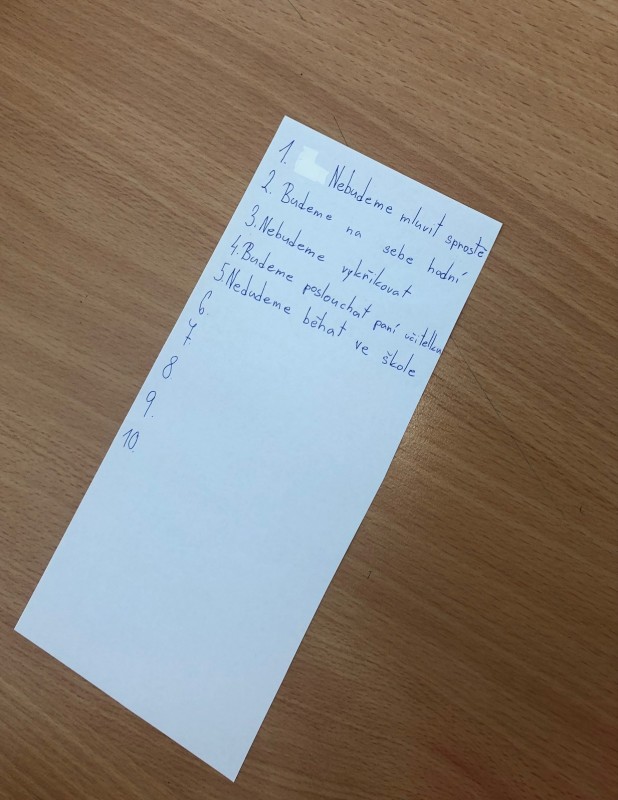 1. Nebudeme mluvit sprostě
2. Budeme na sebe hodní
3. Nebudeme vykřikovat
4. Budeme poslouchat paní učitelku
5. Nedudeme běhat ve škole
6.
7.
8.
9.
10.